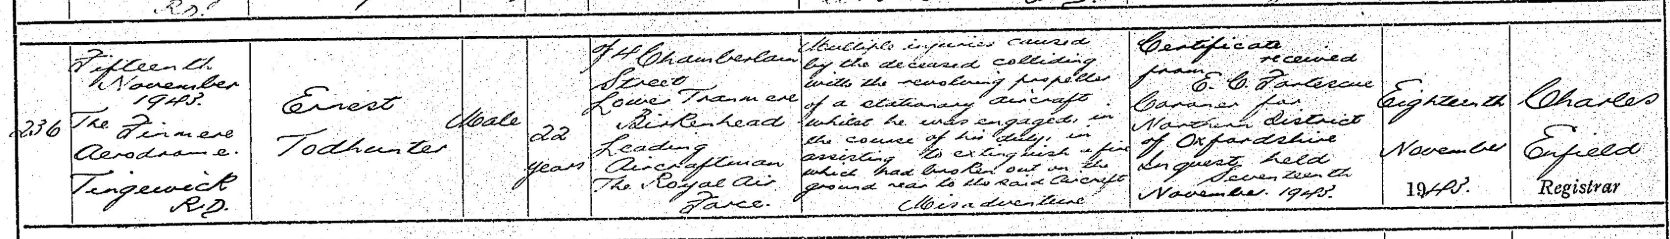 R.D.
236
Fifteenth
November
1943.
The
Finmere
Aerodrome.
Tingewick
R.D.
Ernest
Todhunter
Male
22
years
of 4 Chamberlain
Street
Lower Tranmere
Birkenhead
Leading
Aircraftman
The Royal Air
Force.
Multiple injuries caused
by the deceased colliding
with the revolving propeller
of a stationary aircraft
whilst he was engaged in
the course of his duty in
assisting to extinguish a fire
which had broken out on the
ground near to the said Aircraft
Misadventure
Certificate
received
from E. C. Fortescue
Coroner for
Northern District
of Oxfordshire
Inquest held
Seventeenth
November. 1943.
Eighteenth
November
1943.
Charles
Enfield
Registrar